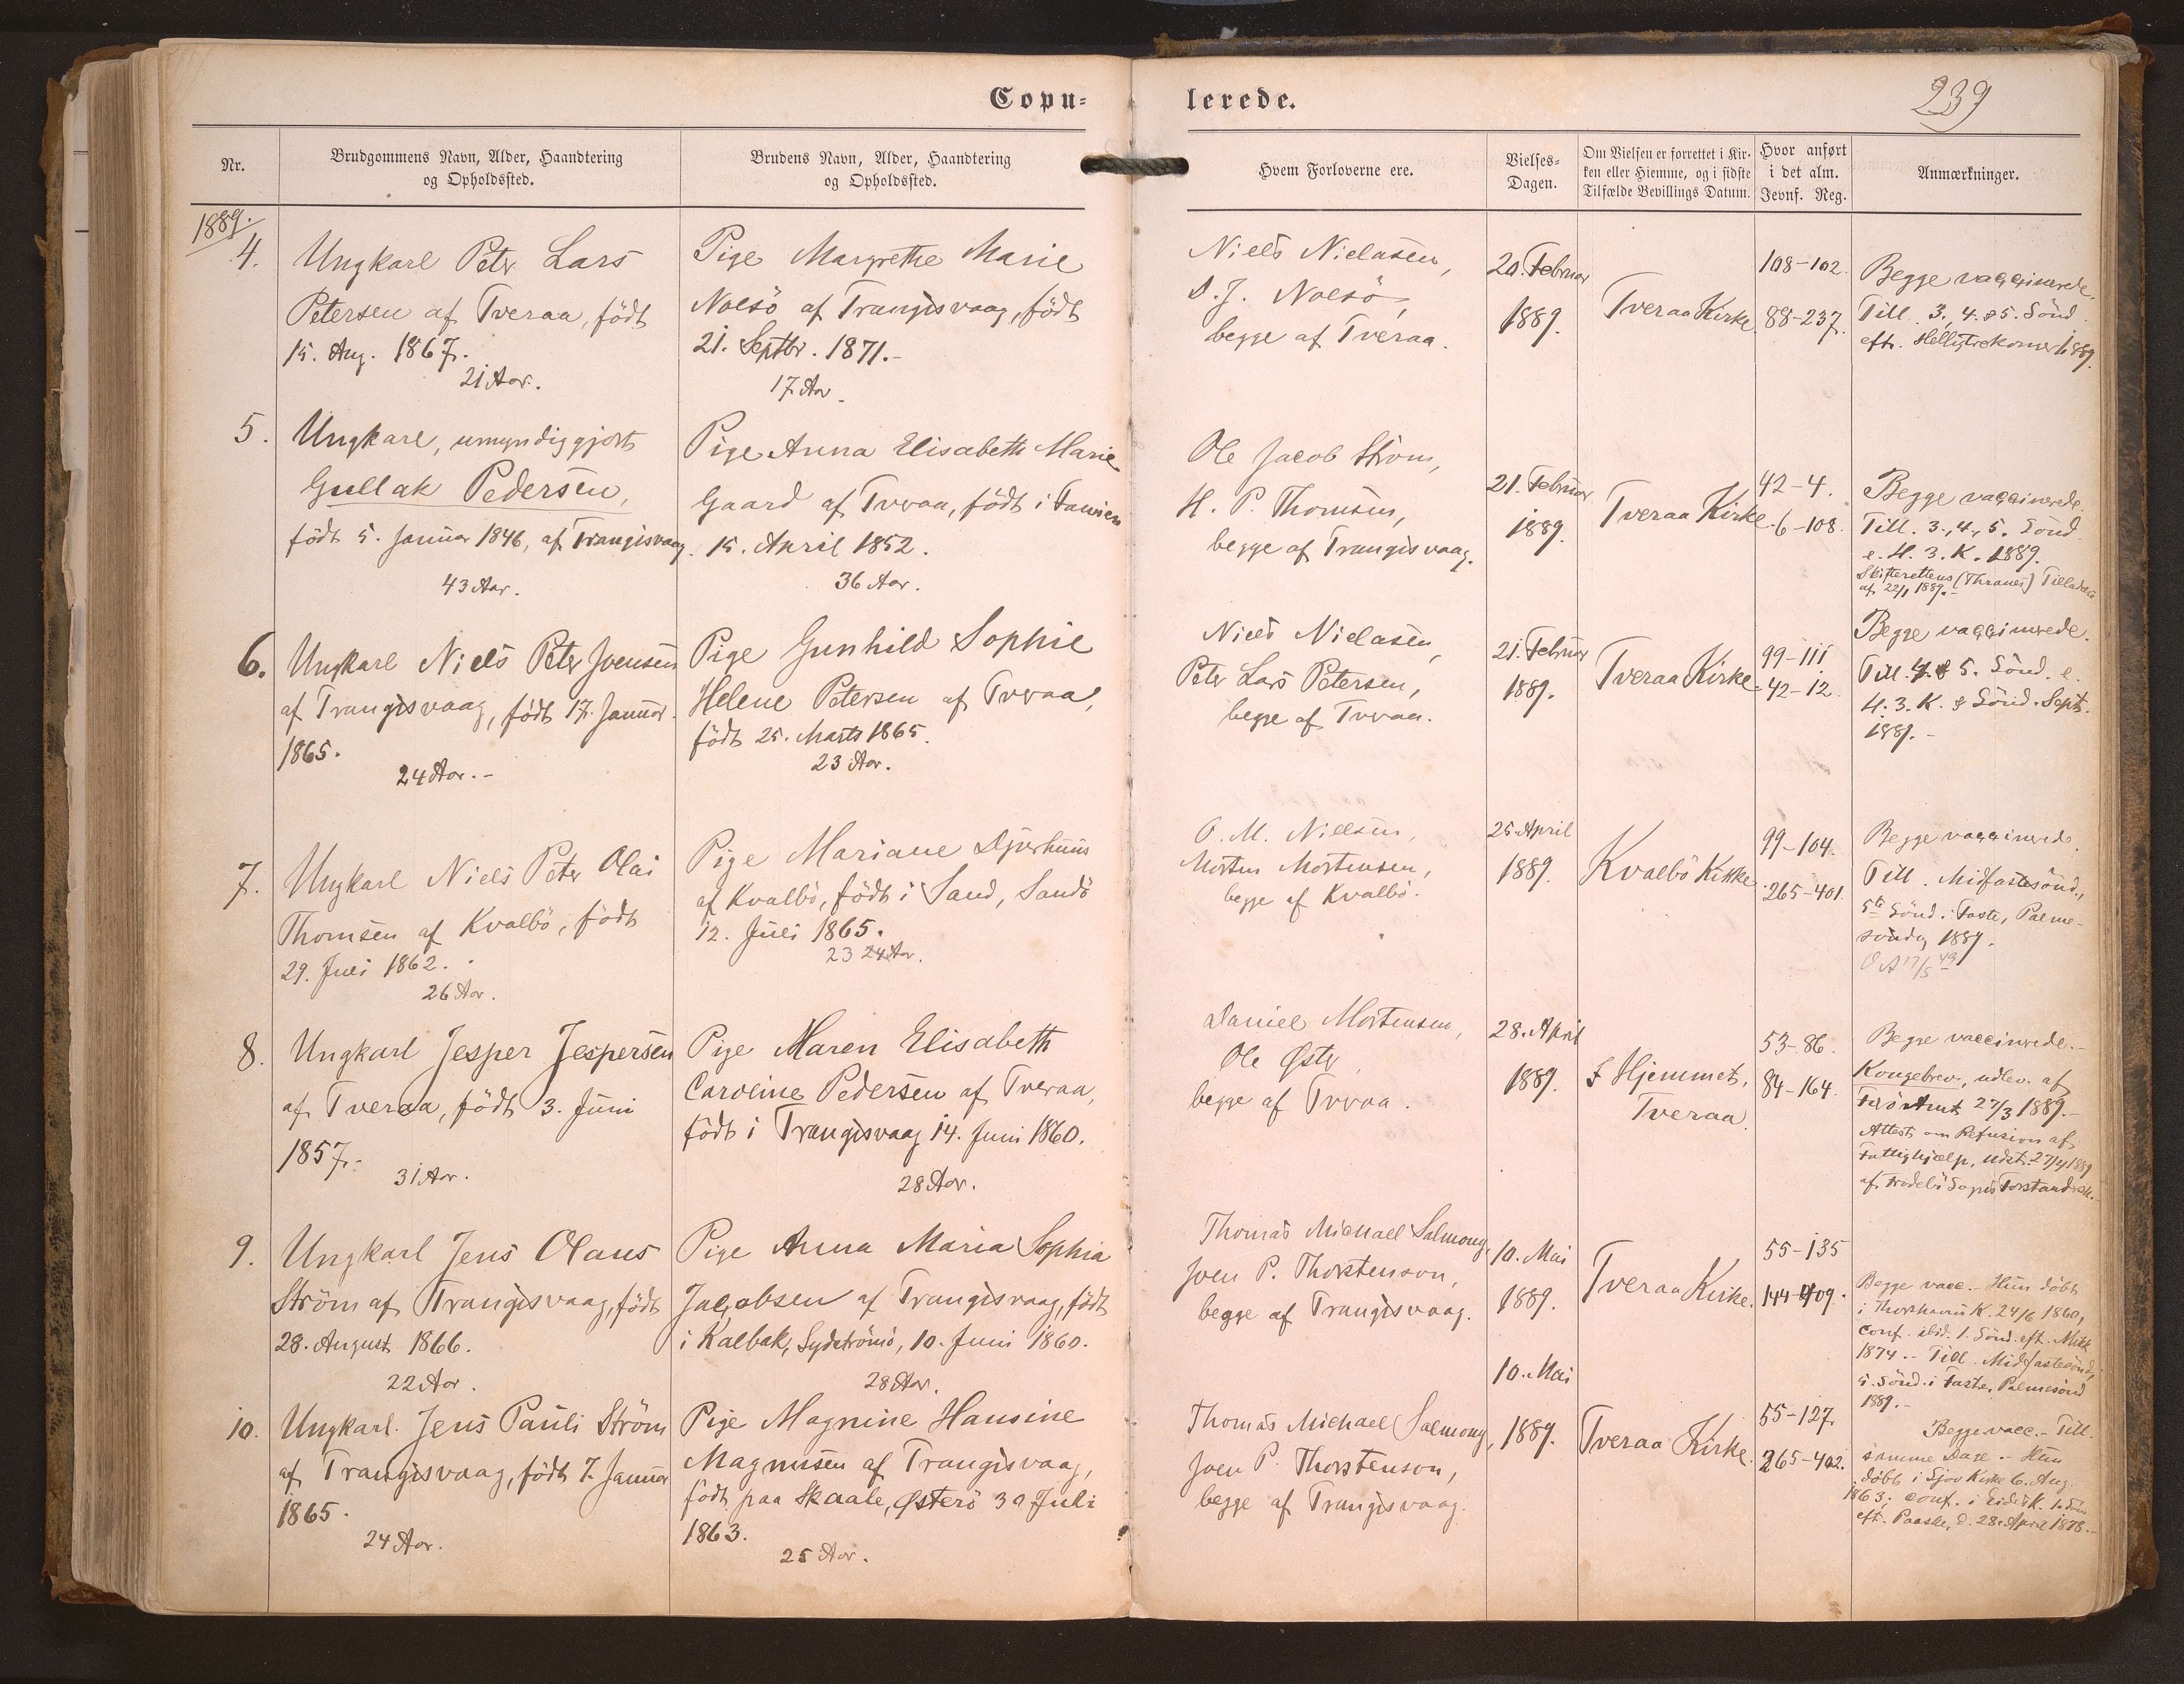 Copu=
lerede.
239
Nr.
Brudgommens Navn, Alder, Haandtering
og Opholdssted.
Brudens Navn, Alder, Haandtering
og Opholdssted.
Hvem Forloverne ere.
Vielses-
Dagen.
Om Vielsen er forrettet i Kir-
ken eller Hiemme, og i sidste
Tilfælde Bevillings Datum.
Hvor anført
i det alm.
Jevnf. Reg.
Anmærkninger.
1889.
4.
Ungkarl Peter Lars
Petersen af Tveraa, födt
15. Aug. 1867.
21 Aar.
Pige Margrethe Marie
Nolsö af Trangisvaag, födt
21. Septbr. 1871.-
17 Aar.
Niels Nielasen,
D. J. Nolsö,
begge af Tveraa.
20. Februar
1889.
Tveraa Kirke.
108-102.
88-237.
Begge vaccinerede.
Till. 3., 4. & 5. Sönd.
eft. Helligtrekonger 1889.
5.
Ungkarl, umyndiggjort
Gullak Pedersen,
födt 5. Januar 1846, af Trangisvaag.
43 Aar.
Pige Anna Elisabeth Marie
Gaard af Tvraa, födt i Famien
15. April 1852.
36 Aar.
Ole Jacob Ström,
H. P. Thomsen,
begge af Trangisvaag.
21. Februar
1889.
Tveraa Kirke.
42-4.
6-108.
Begge vaccinerede.
Till. 3., 4., 5. Sönd.
e. H. 3. K. 1889.
Skifterettens (Thranes) Tilladelse
af 22/1 1889.-
6.
Ungkarl Niels Peter Joensen
af Trangisvaag, födt 17. Januar
1865.
24 Aar.-
Pige Gunhild Sophie
Helene Petersen af Tvraa,
födt 25. Marts 1865.
23 Aar.
Niels Nielasen,
Peter Lars Petersen,
begge af Tvraa.
21. Februar
1889.
Tveraa Kirke.
99-111
42-12.
Begge vaccinerede.
Till. 4. & 5. Sönd. e.
H. 3. K. & Sönd. Sept.
1889.-
7.
Ungkarl Niels Peter Olai
Thomsen af Kvalbö, födt
29. Juli 1862.
26 Aar.
Pige Mariane Djurhuus
af Kvalbö, födt i Sand, Sandö
12. Juli 1865.
23 24 Aar.
O. M. Nielsen,
Morten Mortensen,
begge af Kvalbö.
25. April
1889.
Kvalbö Kirke
99-104.
265-401.
Begge vaccinerede.
Till. Midfastesönd.,
5te Sönd. i Faste, Palme-
söndag 1889.
8.
Ungkarl Jesper Jespersen
af Tveraa, födt 3. Juni
1857.-
31 Aar.
Pige Maren Elisabeth
Caroline Pedersen af Tveraa,
födt i Trangisvaag 14. Juni 1860.
28 Aar.
Daniel Mortensen,
Ole Øster,
begge af Tvraa.
28. April
1889.
I Hjemmet,
Tveraa.
53-86.
84-164.
Begge vaccinerede.-
Kongebrev, udlev. af
Færö Amt 27/3 1889.-
Attest om Refusion af
Fattighjælp, udst. 27/4 1889
af
9.
Ungkarl Jens Olaus
Ström af Trangisvaag, födt
28. August 1866.
22 Aar.
Pige Anna Maria Sophia
Jacobsen af Trangisvaag, födt
i Kalbak, Sydströmö, 10. Juni 1860.
28 Aar.
Thomas Michael Salmong,
Joen P. Thorstenson,
begge af Trangisvaag.
10. Mai
1889.
Tveraa Kirke.
55-135
144-409.
Begge vacc.- Hun döbt
i Thorshavns K. 24/6 1860,
conf. ibid. 1. Sönd. eft. Mikk.
1874.- Till. Midfastesönd.,
5. Sönd. i Faste, Palmesönd
1889.-
10.
Ungkarl Jens Pauli Ström
af Trangisvaag, födt 7. Januar
1865.
24 Aar.
Pige Magnine Hansine
Magnusen af Trangisvaag,
födt paa Skaale, Østerö 30 Juli
1863.
25 Aar.
Thomas Michael Salmong,
Joen P. Thorstenson,
begge af Trangisvaag.
10. Mai
1889.
Tveraa Kirke.
55-127.
265-402.
Begge vacc.- Till.
samme Dage.- Hun
döbt i Sjov Kirke 6. Aug.
1863; conf. i Eide K. 1. Sön.
eft. Paaske, d. 28. April 1878.-